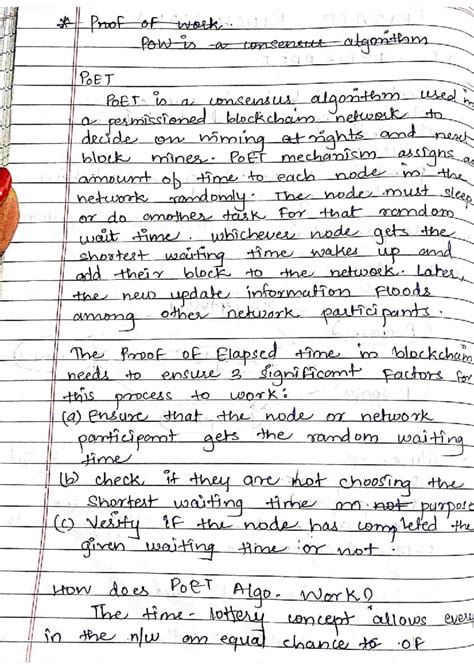 * Proof of work.
POW is a consensus algorithm
POET
POET is a consensus algorithm used in
a permissioned blockchain network to
decide on mining at rights and next
block miner. POET mechanism assigns an
amount of time to each node in the
network randomly. The node must sleep
or do another task for that random
wait time. whichever node gets the
shortest waiting time wakes up and
add their block to the network. Later,
the new update information floods
among other network participants.
The Proof of Elapsed time in blockchain
needs to ensure 3 significant factors for
this process to work:
(a) Ensure that the node or network
participant gets the random waiting
time
(b) check if they are not choosing the
shortest waiting time on not purpose
(c) Verify if the node has completed the
given waiting time or not.
How does POET Algo. Work?
The time-lottery concept allows every
in the n/w an equal chance to of